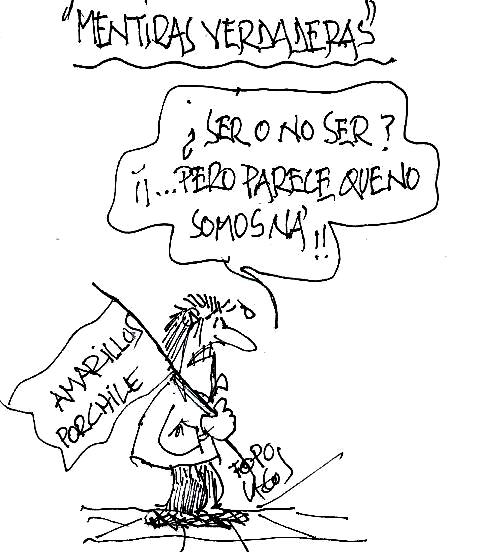 "MENTIRAS VERDADERAS"
¿SER O NO SER?
¡¡...PERO PARECE QUE NO
SOMOS NA'!!
AMARILLOS
POR CHILE